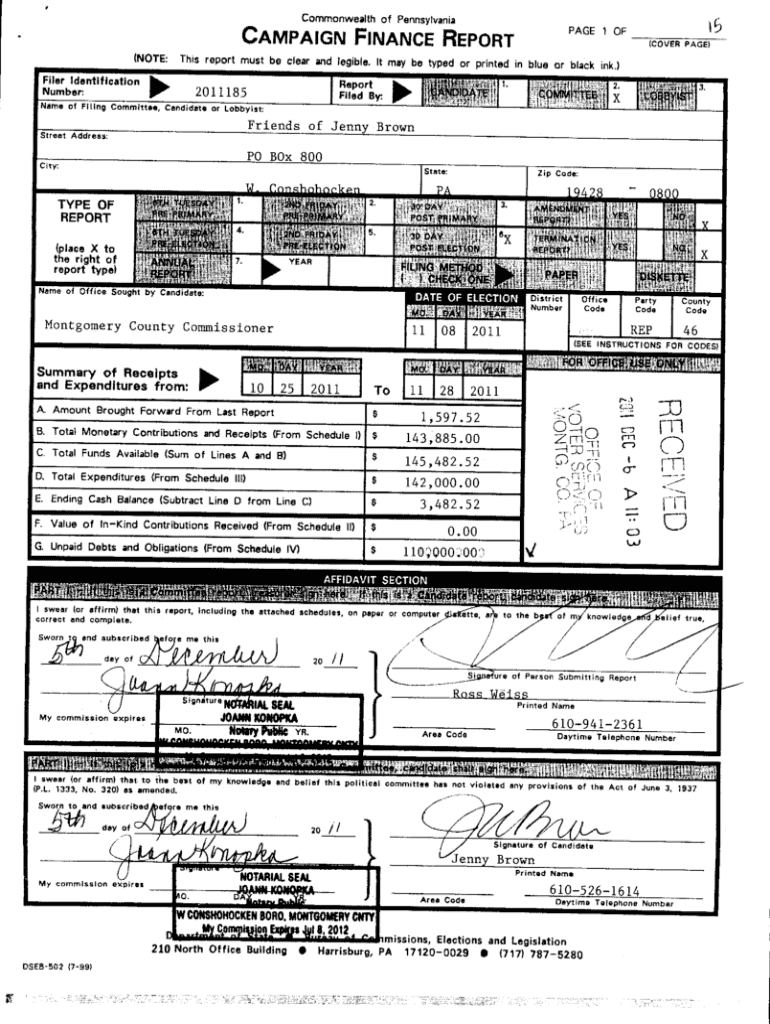 Commonwealth of Pennsylvania
CAMPAIGN FINANCE REPORT
PAGE 1 OF 15
(COVER PAGE)
(NOTE: This report must be clear and legible. It may be typed or printed in blue or black ink.)
Filer Identification Number: 2011185
Report Filed By: CANDIDATE 1. COMMITTEE 2. X LOBBYIST 3.
Name of Filing Committee, Candidate or Lobbyist:
Friends of Jenny Brown
Street Address:
PO BOx 800
City: State: Zip Code:
W. Conshohocken PA 19428 - 0800
TYPE OF REPORT
(place X to the right of report type)
6TH TUESDAY PRE-PRIMARY 1. 2ND FRIDAY PRE-PRIMARY 2. 30 DAY POST PRIMARY 3. AMENDMENT REPORT? YES NO X
6TH TUESDAY PRE-ELECTION 4. 2ND FRIDAY PRE-ELECTION 5. 30 DAY POST ELECTION 6. X TERMINATION REPORT? YES NO X
ANNUAL REPORT 7. YEAR FILING METHOD ( ) CHECK ONE PAPER DISKETTE
Name of Office Sought by Candidate:
Montgomery County Commissioner
DATE OF ELECTION
MO. DAY YEAR
11 08 2011
District Number Office Code Party Code County Code
REP 46
(SEE INSTRUCTIONS FOR CODES)
Summary of Receipts and Expenditures from:
MO. DAY YEAR
10 25 2011
To
MO. DAY YEAR
11 28 2011
FOR OFFICE USE ONLY
A. Amount Brought Forward From Last Report $ 1,597.52
B. Total Monetary Contributions and Receipts (From Schedule I) $ 143,885.00
C. Total Funds Available (Sum of Lines A and B) $ 145,482.52
D. Total Expenditures (From Schedule III) $ 142,000.00
E. Ending Cash Balance (Subtract Line D from Line C) $ 3,482.52
F. Value of In-Kind Contributions Received (From Schedule II) $ 0.00
G. Unpaid Debts and Obligations (From Schedule IV) $
RECEIVED
2011 DEC -6 A 11:03
OFFICE OF
VOTER SERVICES
MONTG. CO. PA
AFFIDAVIT SECTION
PART I - If this is a Committee report, treasurer sign here. If this is a Candidate report, candidate sign here.
I swear (or affirm) that this report, including the attached schedules, on paper or computer diskette, are to the best of my knowledge and belief true, correct and complete.
Sworn to and subscribed before me this
5th day of December 20 11
Joann Konopka
Signature
Signature of Person Submitting Report
Ross Weiss
Printed Name
My commission expires
MO. YR.
NOTARIAL SEAL
JOANN KONOPKA
Notary Public
W CONSHOHOCKEN BORO, MONTGOMERY CNTY
610-941-2361
Area Code Daytime Telephone Number
I swear (or affirm) that to the best of my knowledge and belief this political committee has not violated any provisions of the Act of June 3, 1937
(P.L. 1333, No. 320) as amended.
Sworn to and subscribed before me this
5th day of December 20 11
Joann Konopka
Signature
Signature of Candidate
Jenny Brown
Printed Name
My commission expires
MO. DAY YR.
NOTARIAL SEAL
JOANN KONOPKA
Notary Public
W CONSHOHOCKEN BORO, MONTGOMERY CNTY
My Commission Expires Jul 8, 2012
610-526-1614
Area Code Daytime Telephone Number
Department of State ● Bureau of Commissions, Elections and Legislation
210 North Office Building ● Harrisburg, PA 17120-0029 ● (717) 787-5280
DSEB-502 (7-99)